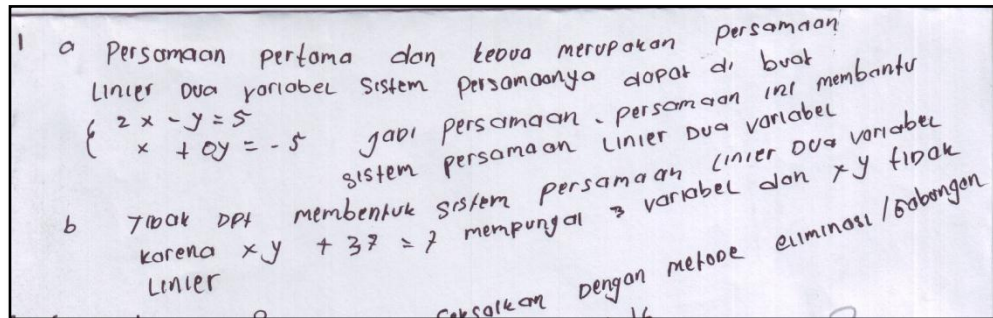 1 a Persamaan pertama dan kedua merupakan persamaan
Linier Dua variabel Sistem Persamaanya dapat di buat
{ 2x - y = 5
x + 0y = -5 Jadi persamaan-persamaan ini membantu
sistem persamaan Linier Dua variabel
b Tidak Dpt membentuk sistem persamaan Linier Dua variabel
karena xy + 3z = 7 mempunyai 3 variabel dan xy tidak
Linier
Dengan metode eliminasi / Gabongan